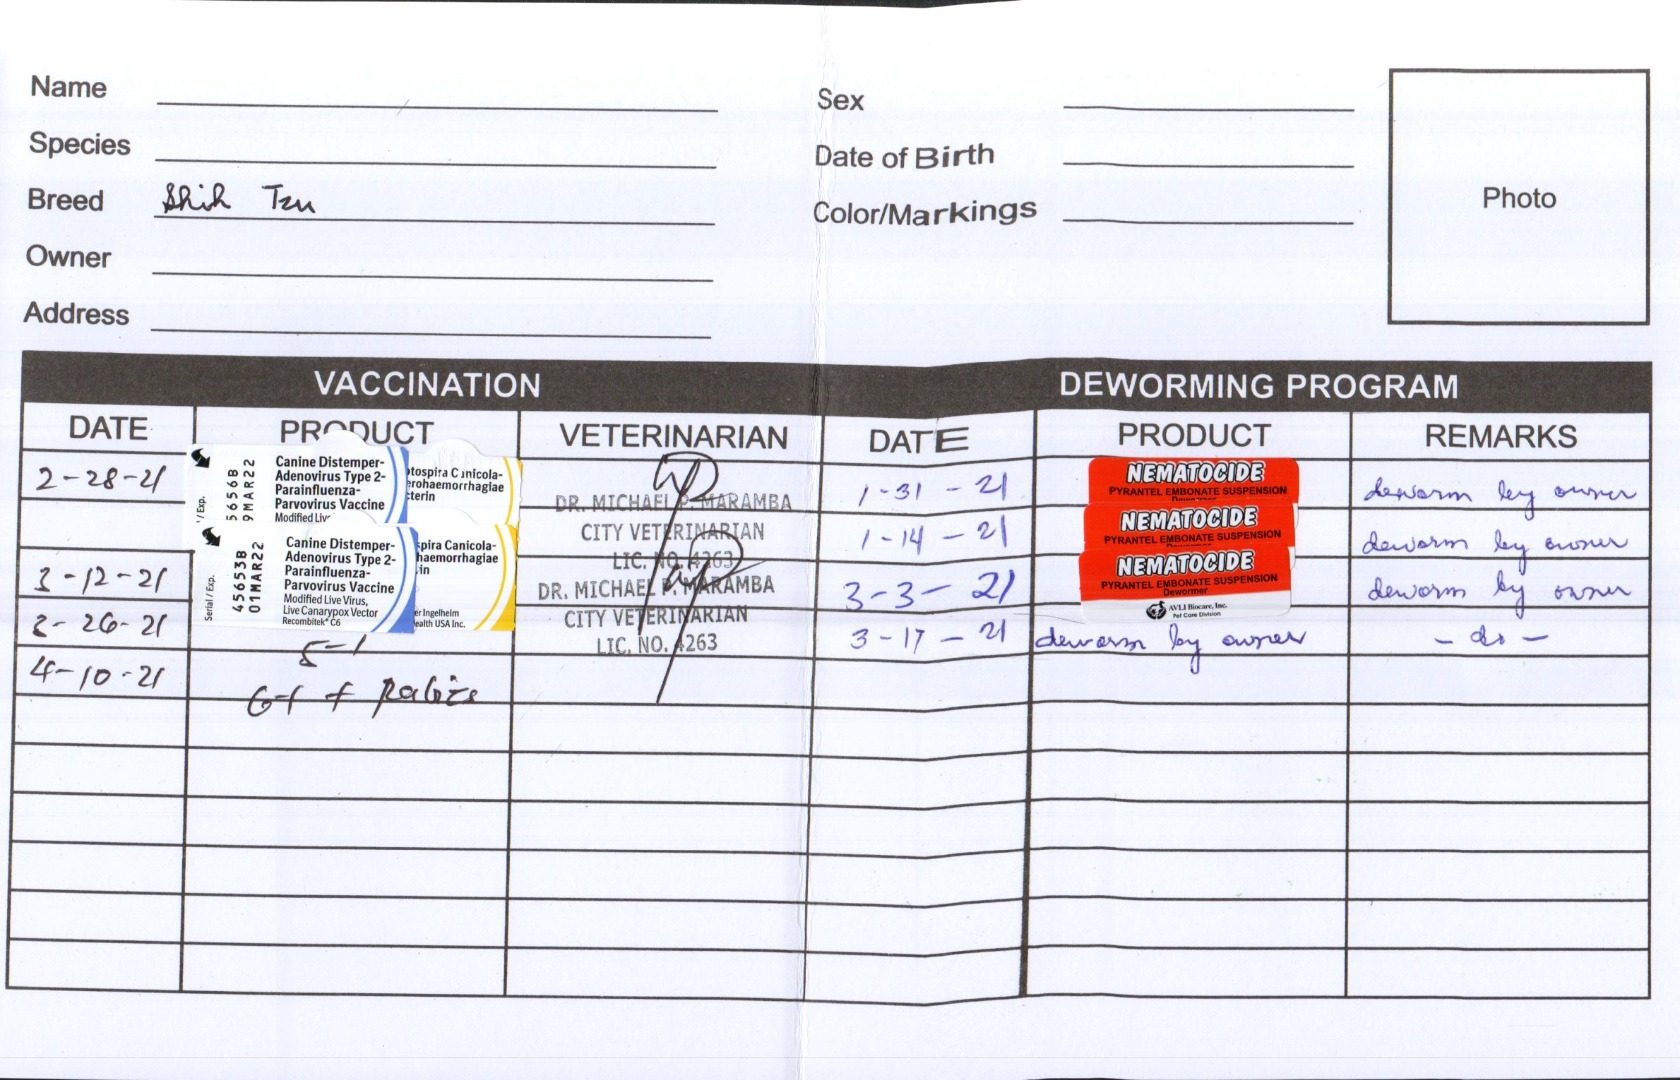 Name
Sex
Species
Date of Birth
Breed Shih Tzu
Color/Markings
Photo
Owner
Address
VACCINATION
DEWORMING PROGRAM
DATE PRODUCT VETERINARIAN DATE PRODUCT REMARKS
2-28-21
5656B
9MAR22
/ Exp.
Canine Distemper-
Adenovirus Type 2-
Parainfluenza-
Parvovirus Vaccine
Modified Liv
tospira C nicola-
erohaemorrhagiae
cterin
DR. MICHAEL P. MARAMBA
CITY VETERINARIAN
LIC. NO. 4263
1-31-21
NEMATOCIDE
PYRANTEL EMBONATE SUSPENSION
Dewormer
deworm by owner
1-14-21
NEMATOCIDE
PYRANTEL EMBONATE SUSPENSION
deworm by owner
3-12-21
Serial / Exp.
45653B
01MAR22
Canine Distemper-
Adenovirus Type 2-
Parainfluenza-
Parvovirus Vaccine
Modified Live Virus,
Live Canarypox Vector
Recombitek® C6
spira Canicola-
haemorrhagiae
in
er Ingelheim
ealth USA Inc.
DR. MICHAEL P. MARAMBA
CITY VETERINARIAN
LIC. NO. 4263
3-3-21
NEMATOCIDE
PYRANTEL EMBONATE SUSPENSION
Dewormer
AVLI Biocare, Inc.
Pet Care Division
deworm by owner
3-26-21
5-1
3-17-21
deworm by owner
- do -
4-10-21
6-1 + Rabies